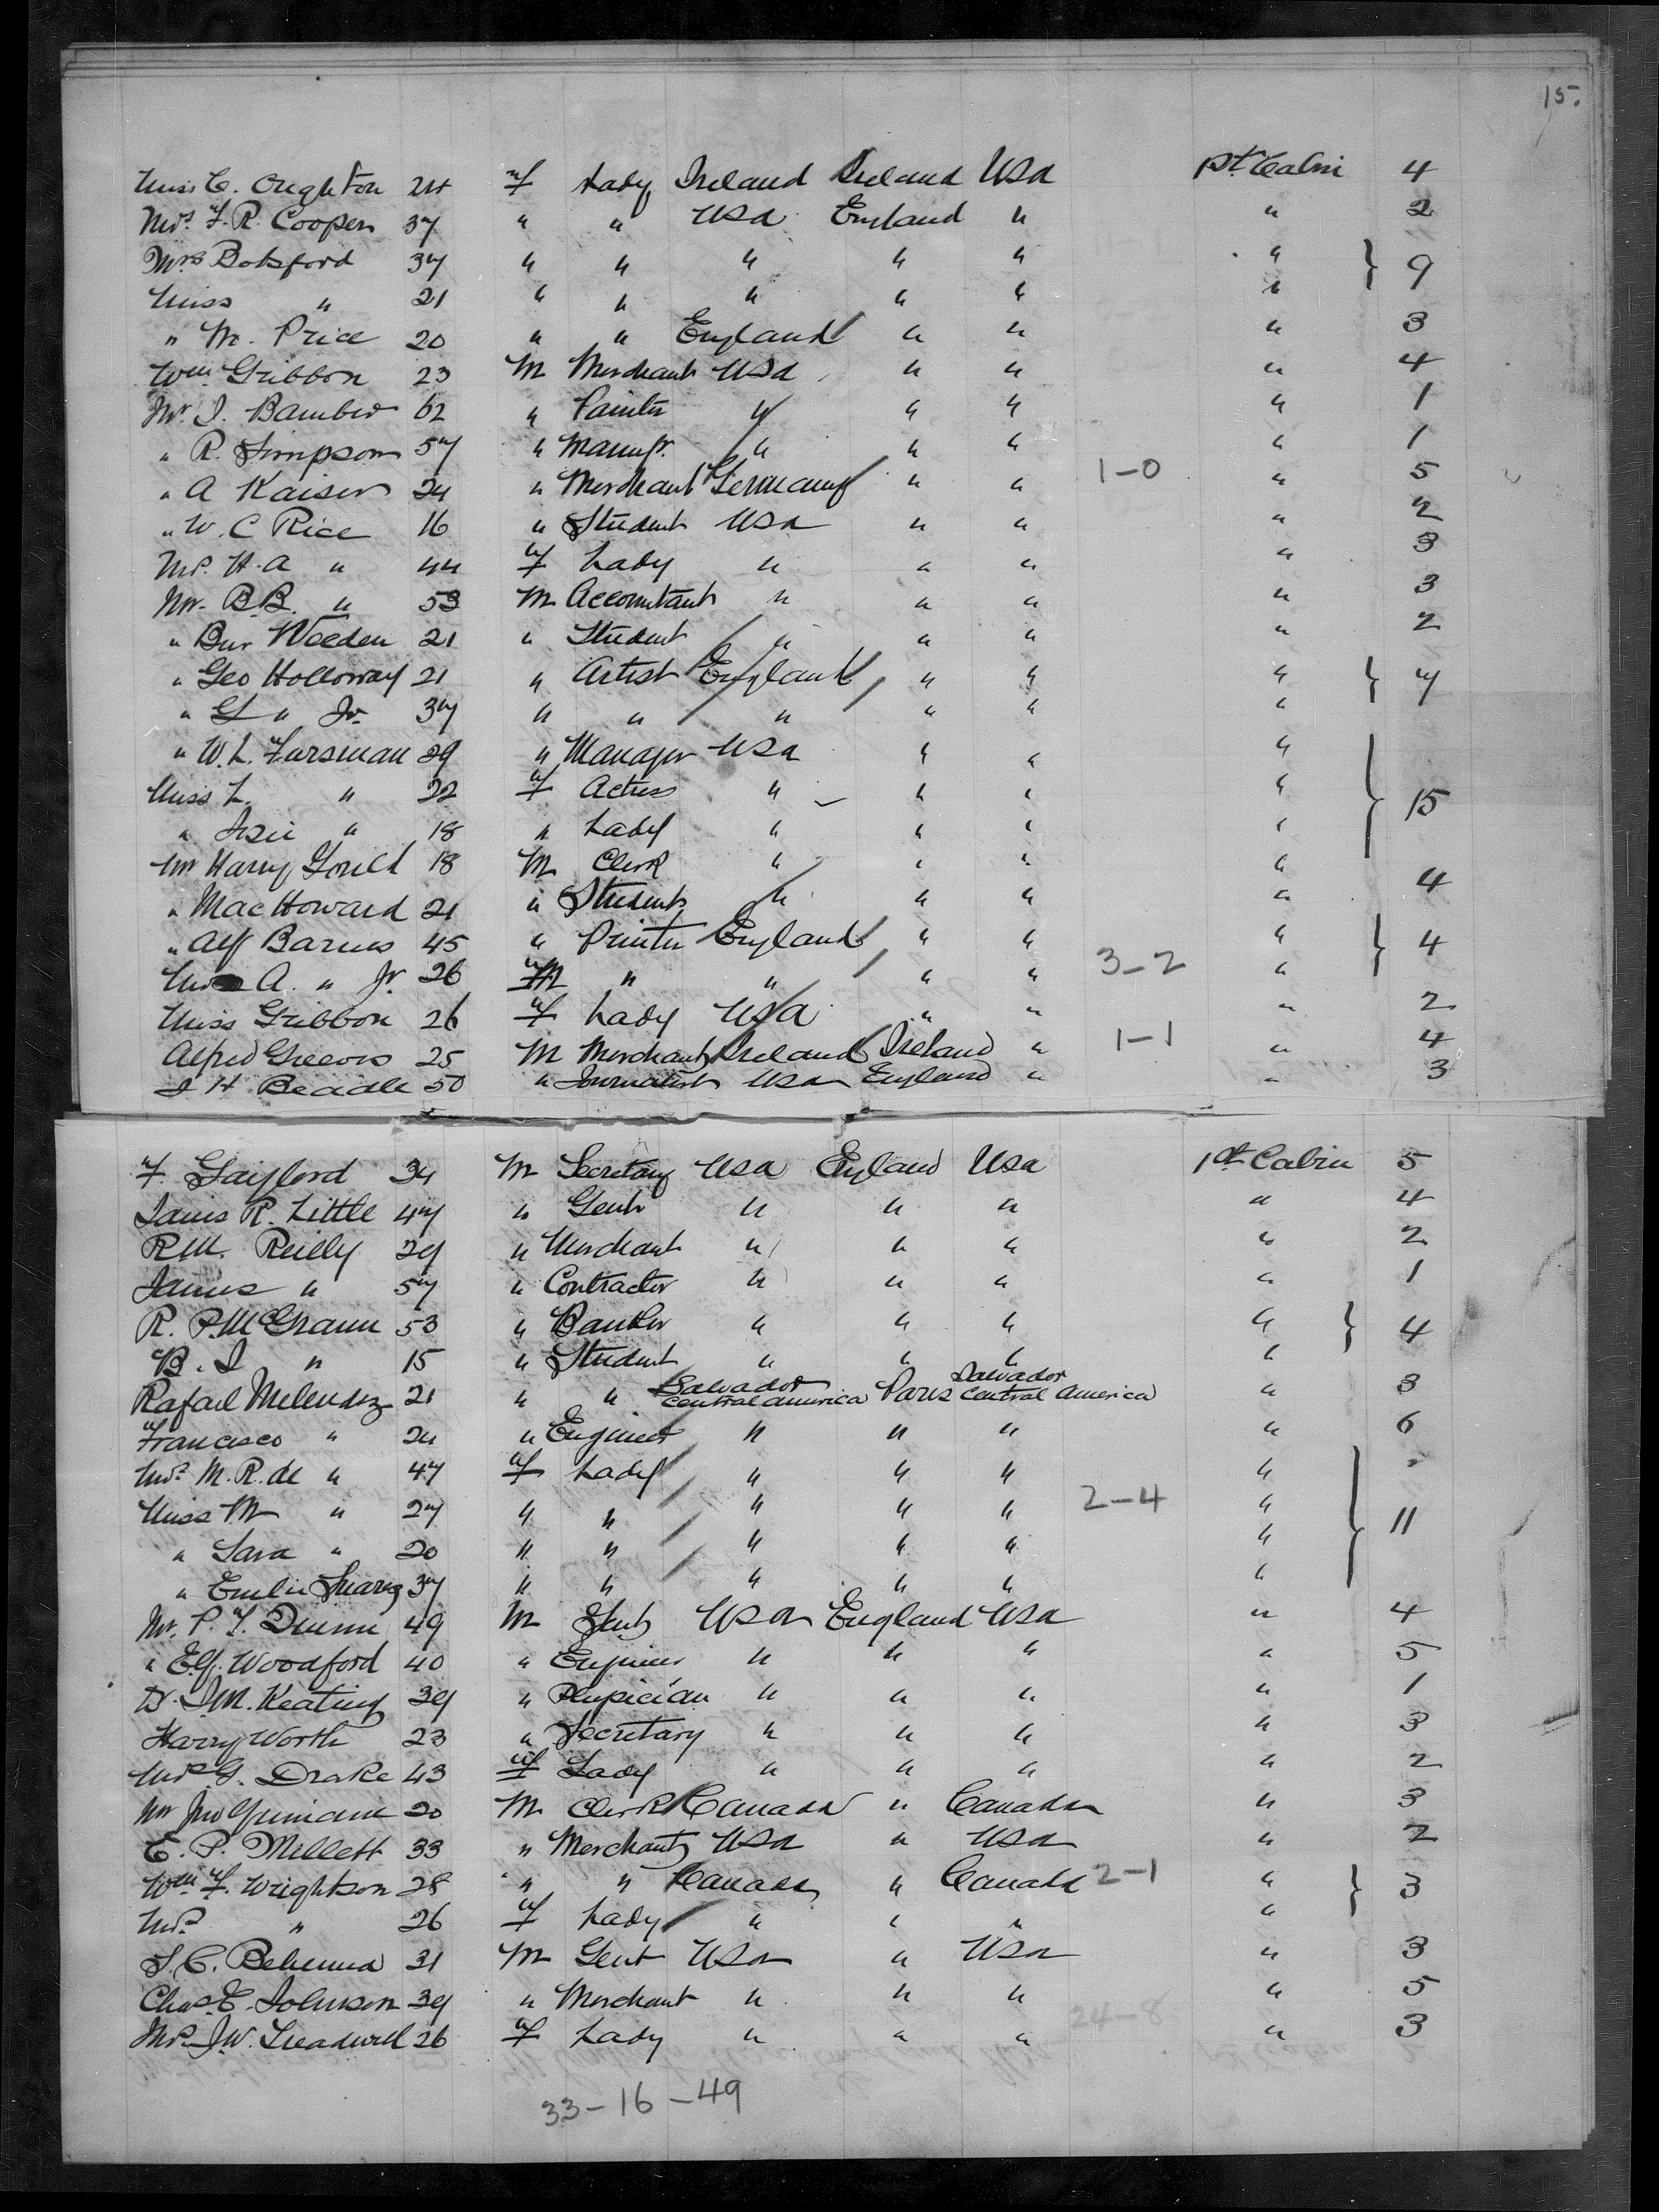 15.
Miss C. Oughton 24 f Lady Ireland Ireland USA 1st Cabin 4
Mrs. F. R. Cooper 37 " " USA England " " 2
Mrs Botsford 37 " " " " " " } 9
Miss " 21 " " " " " "
" M. Price 20 " " England " " " 3
Wm Gribbon 23 M Merchant USA " " " 4
Mr. J. Bamber 62 " Painter " " " " 1
" R. Simpson 57 " Manufr. " " " " 1
" A Kaiser 24 " Merchant Germany " " 1-0 " 5
" W. C Rice 16 " Student USA " " " 2
Mrs. H. A " 44 f Lady " " " " 3
Mr. B. B. " 53 M Accountant " " " " 3
" Bur Weeden 21 " Student " " " " 2
" Geo Holloway 21 " Artist England " " " } 7
" G " Jr. 37 " " " " " "
" W. L. Fursman 29 " Manager USA " " " } 15
Miss L. " 22 f Actress " " " "
" Josie " 18 " Lady " " " "
Mr Harry Gould 18 M Clerk " " " " 4
" Mac Howard 21 " Student " " " "
" Alf Barnes 45 " Printer England " " " } 4
A. " Jr. 26 M " " " " 3-2 "
Miss Gribbon 26 f Lady USA " " " 2
Alfred Greeves 25 M Merchant Ireland Ireland " 1-1 " 4
J H Beadle 50 " Journalist USA England " " 3
F. Gaylord 34 M Secretary USA England USA 1st Cabin 5
James R. Little 47 " Gent " " " " 4
R. M. Reilly 29 " Merchant " " " " 2
James " 57 " Contractor " " " " 1
R. P. McGrann 53 " Banker " " " " } 4
B. J " 15 " Student " " " "
Rafael Melendez 21 " " Salvador Central America Paris Salvador Central America " 3
Francisco " 24 " Engineer " " " " 6
Mrs. M. R. de " 47 f Lady " " " " } 11
Miss M " 27 " " " " " 2-4 "
" Sara " 20 " " " " " "
" Emilie Suarez 37 " " " " " "
Mr. P. F. Dunn 49 M Gent USA England USA " 4
" Woodford 40 " Engineer " " " " 5
Dr. J. M. Keating 39 " Physician " " " " 1
Harry Worth 23 " Secretary " " " " 3
Mrs G. Drake 43 f Lady " " " " 2
Mr Jno 20 M Clerk Canada " Canada " 3
E. P. Millett 33 " Merchant USA " USA " 2
Wm F. Wrightson 28 " " Canada " Canada 2-1 " } 3
Mrs. " 26 f Lady " " " "
S. C. Behenna 31 M Gent USA " USA " 3
Chas. E. Johnson 39 " Merchant " " " " 5
Mrs. J. W. Treadwell 26 f Lady " " " 24-8 " 3
33-16-49